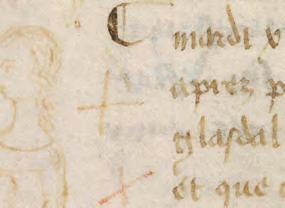 mardi v
apres p
glasdal
et que